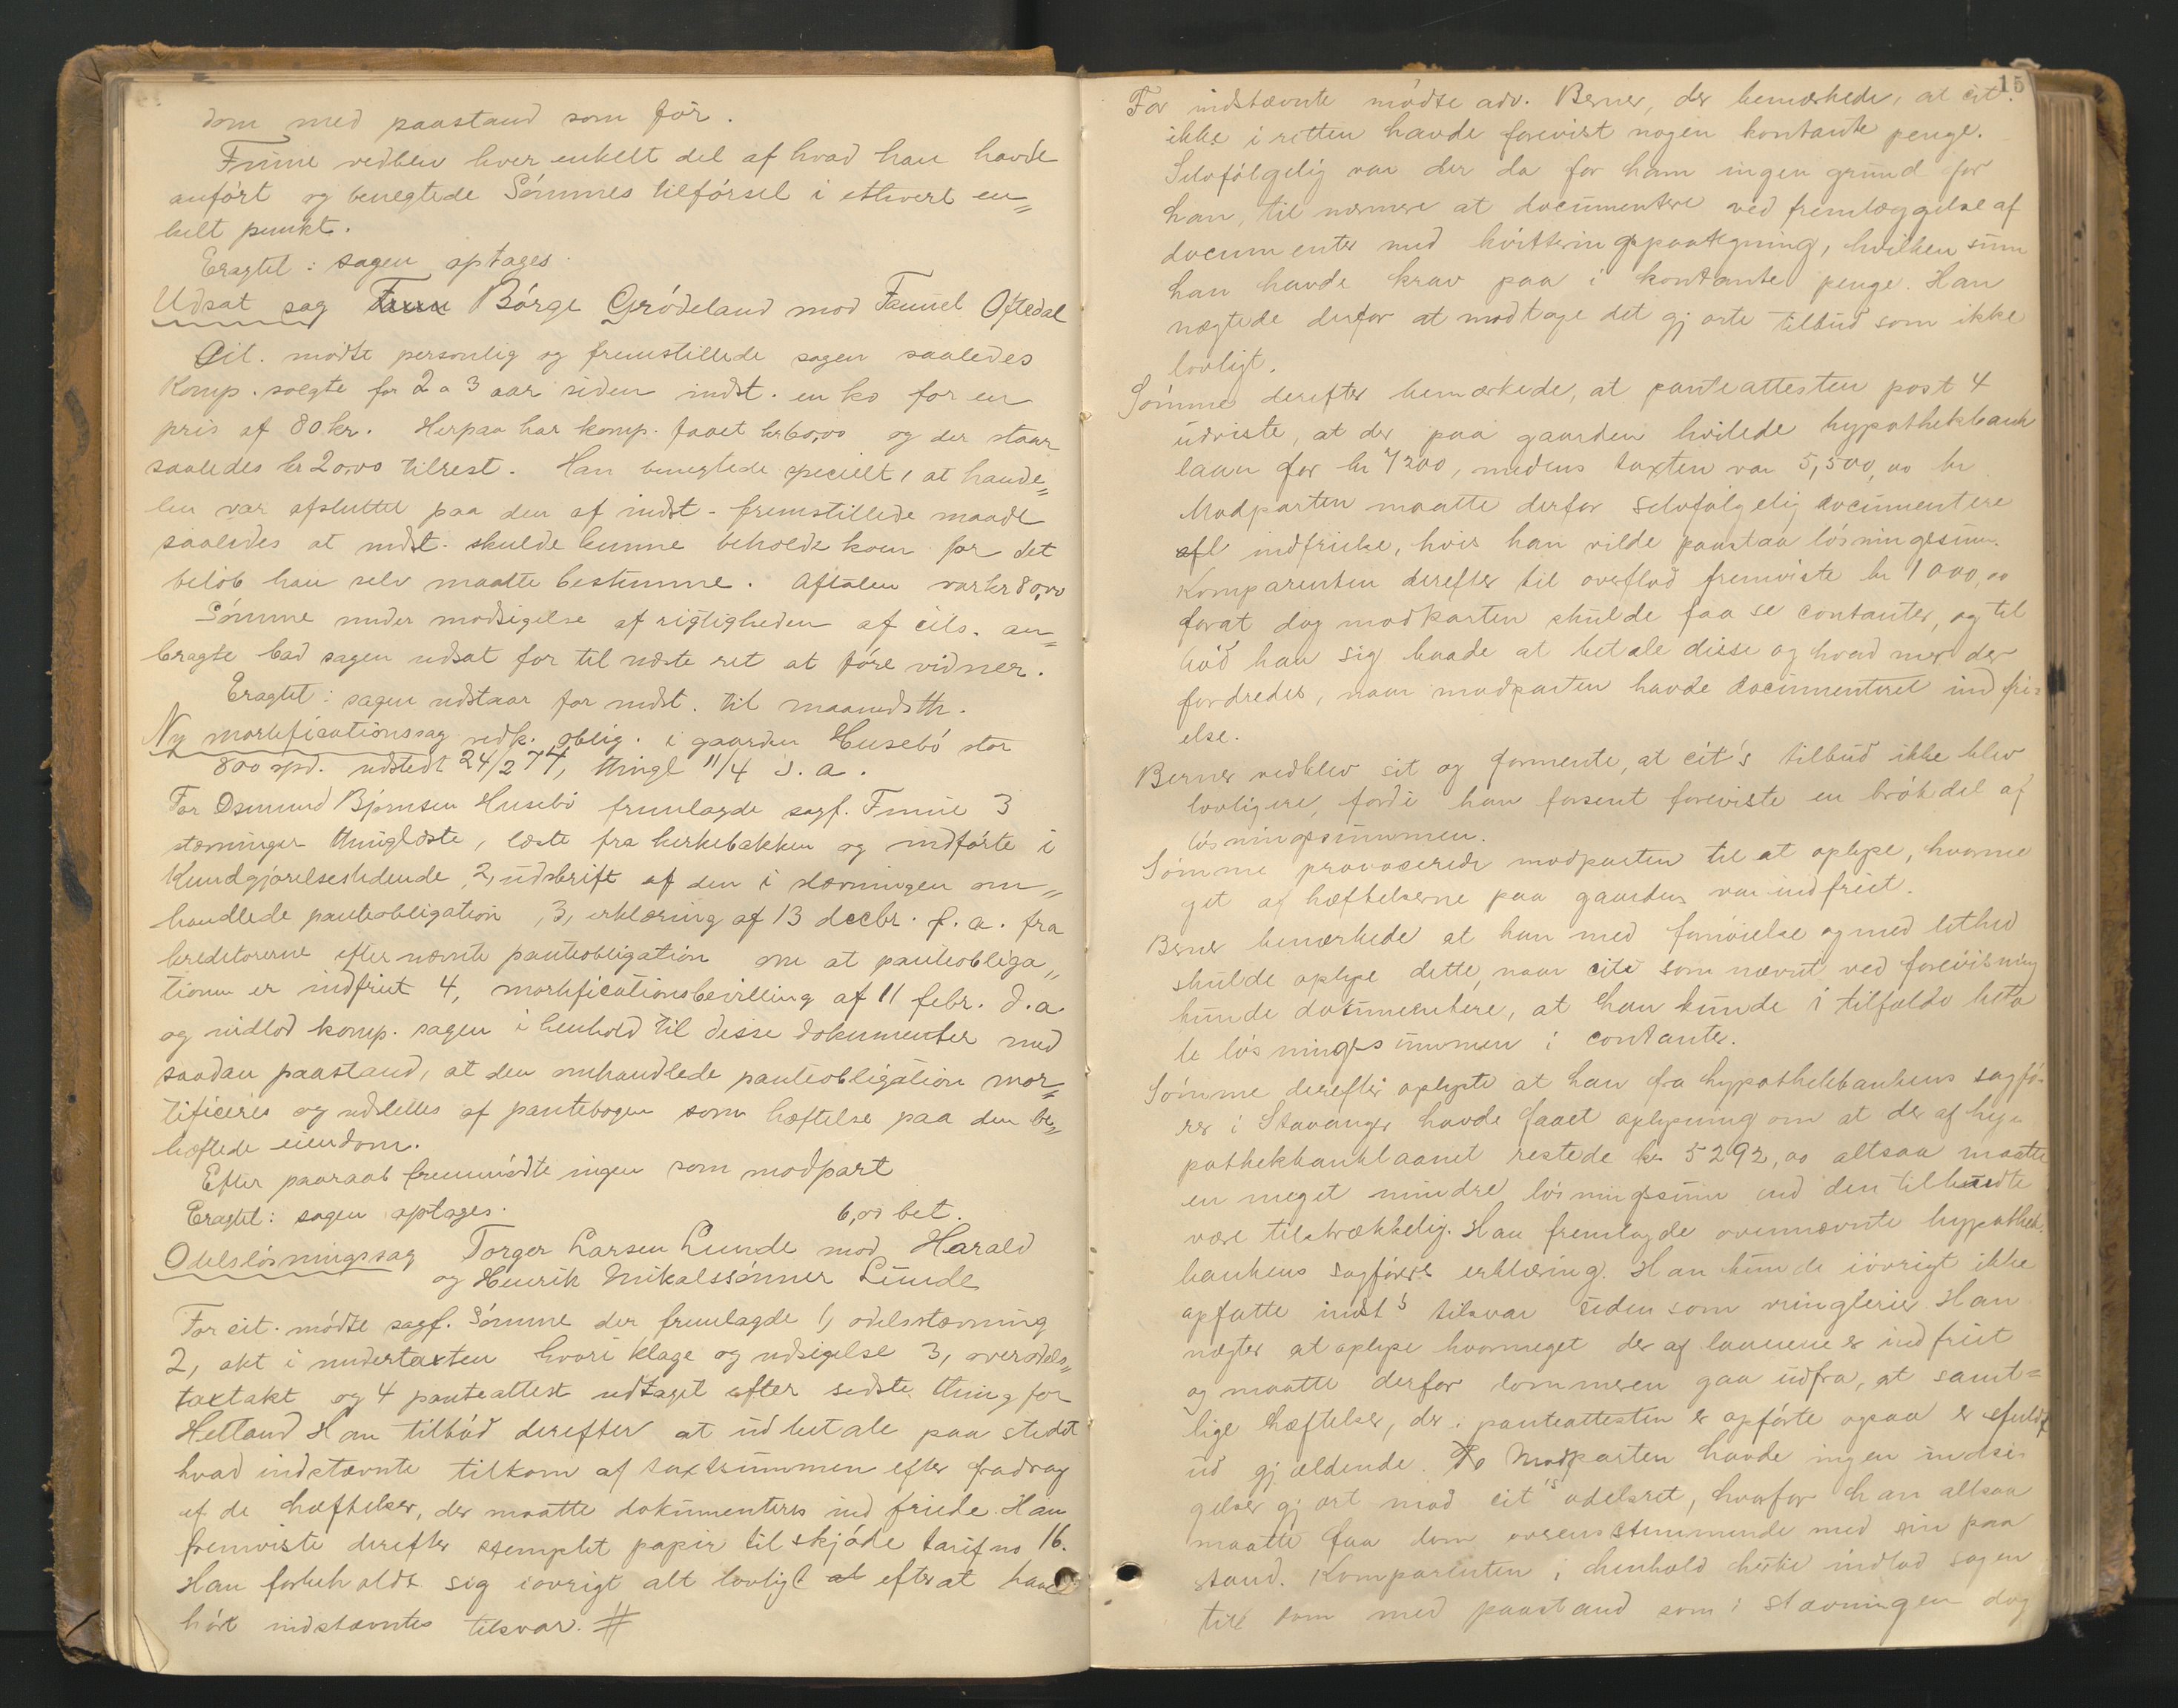 dom med paastand som før.
Finne vedblev hver enkelt del af hvad han havde
anført og benegtede Sømmes tilførsel i ethvert en„
kelt punkt.
Eragtet: sagen optages.
Udsat sag Børge Grødeland mod Fauuel Oftedal
Cit. mødte personlig og fremstillede sagen saaledes
Komp. solgte for 2 a 3 aar siden indst. en ko for en
pris af 80 kr. Herpaa har komp. faaet kr 60,00 og der staar
saaledes kr 20,00 tilrest. Han benegtede specielt, at hande„
len var afsluttet paa den af indst. fremstillede maade
saaledes at indst. skulde kunne beholde koen for det
beløb han selv maatte bestemme. Aftalen var kr 80,00
Sømme under modsigelse af rigtigheden af cits. an„
bragte bad sagen udsat for til næste ret at føre vidner.
Eragtet: sagen udstaar for indst. til maanedsth.
Ny mortificationssag vedk. oblig. i gaarden Husebø stor
800 spd. udstedt 24/2 74, thingl 11/4 s. a.
For Osmund Bjørnsen Husebø fremlagde sagf. Finne 3
stævninger thinglæste, læste fra kirkebakken og indførte i
Kundgjørelsestidende, 2, udskrift af den i stævningen om„
handlede panteobligation, 3, erklæring af 13 decbr. f. a. fra
kreditorerne efter nævnte panteobligation om at panteobliga„
tionen er indfriet 4, mortificationsbevilling af 11 febr. d. a.
og indlod komp. sagen i henhold til disse dokumenter med
saadan paastand, at den omhandlede panteobligation mor„
tificeres og udslettes af pantebogen som hæftelse paa den be„
hæftede eiendom.
Efter paaraab fremmødte ingen som modpart
Eragtet: sagen optages. 6,00 bet.
Odelsløsningssag Torger Larsen Lunde mod Harald
og Henrik Mikalssønner Lunde
For cit. mødte sagf. Sømme der fremlagde 1, odelsstævning
2, akt i undertaxten hvori klage og udsigelse 3, overodels„
taxtakt og 4 panteattest udtaget efter sidste thing for
Hetland Han tilbød derefter at udbetale paa stedet
hvad indstævnte tilkom af taxtsummen efter fradrag
af de hæftelser, der maatte dokumenteres indfriede. Han
fremviste derefter stemplet papir til skjøde tarif no 16.
Han forbeholdt sig iøvrigt alt lovligt efter at have
hørt indstævntes tilsvar. #
15
For indstævnte mødte adv. Berner, der bemærkede, at cit.
ikke i retten havde forevist nogen kontante penge.
Selvfølgelig var der da for ham ingen grund for
han, til nærmere at documentere ved fremlæggelse af
documenter med kvitteringspaategning, hvilken sum
han havde krav paa i kontante penge. Han
nægtede derfor at modtage det gjorte tilbud som ikke
lovligt.
Sømme derefter bemærkede, at panteattesten post 4
udviste, at der paa gaarden hvilede hypothekbank
laan for kr 7200, medens taxten var 5,500,00 kr
Modparten maatte derfor selvfølgelig documentere
indfrielse, hvis han vilde paastaa løsningssum.
Komparenten derefter til overflod fremviste kr 1000,00
forat dog modparten skulde faa se contanter, og til
bød han sig baade at betale disse og hvad mer der
fordredes, naar modparten havde documenteret indfri-
else.
Berner vedblev sit og formente, at cit's tilbud ikke blev
lovligere, fordi han forsent foreviste en brøkdel af
løsningssummen.
Sømme provocerede modparten til at oplyse, hvorme
get af hæftelserne paa gaarden var indfriet.
Berner bemærkede at han med fornøielse og med lethed
skulde oplyse dette, naar cit. som nævnt ved forevisning
kunde dokumentere, at han kunde i tilfælde beta
le løsningssummen i contanter.
Sømme derefter oplyste at han fra hypothekbankens sagfø-
rer i Stavanger havde faaet oplysning om at der af hyp
pothekbanklaanet restede kr. 5292,00 altsaa maatte
en meget mindre løsningssum end den tilbudte
være tilstrækkelig. Han fremlagde ovennævnte hypothek-
bankens sagførers erklæring. Han kunde iøvrigt ikke
opfatte indst's tilsvar uden som vinglerier Han
nægter at oplyse hvormeget der af laanene er indfriet
og maatte derfor dommeren gaa udfra, at samt=
lige hæftelser, der i panteattesten er opførte ogsaa er fuldt
ud gjældende. Modparten havde ingen indsi-
gelser gjort mod cit's odelsret, hvorfor han altsaa
maatte faa dom overensstemmende med sin paa
stand. Komparenten i henhold hertil indlod sagen
till dom med paastand som i stævningen dog